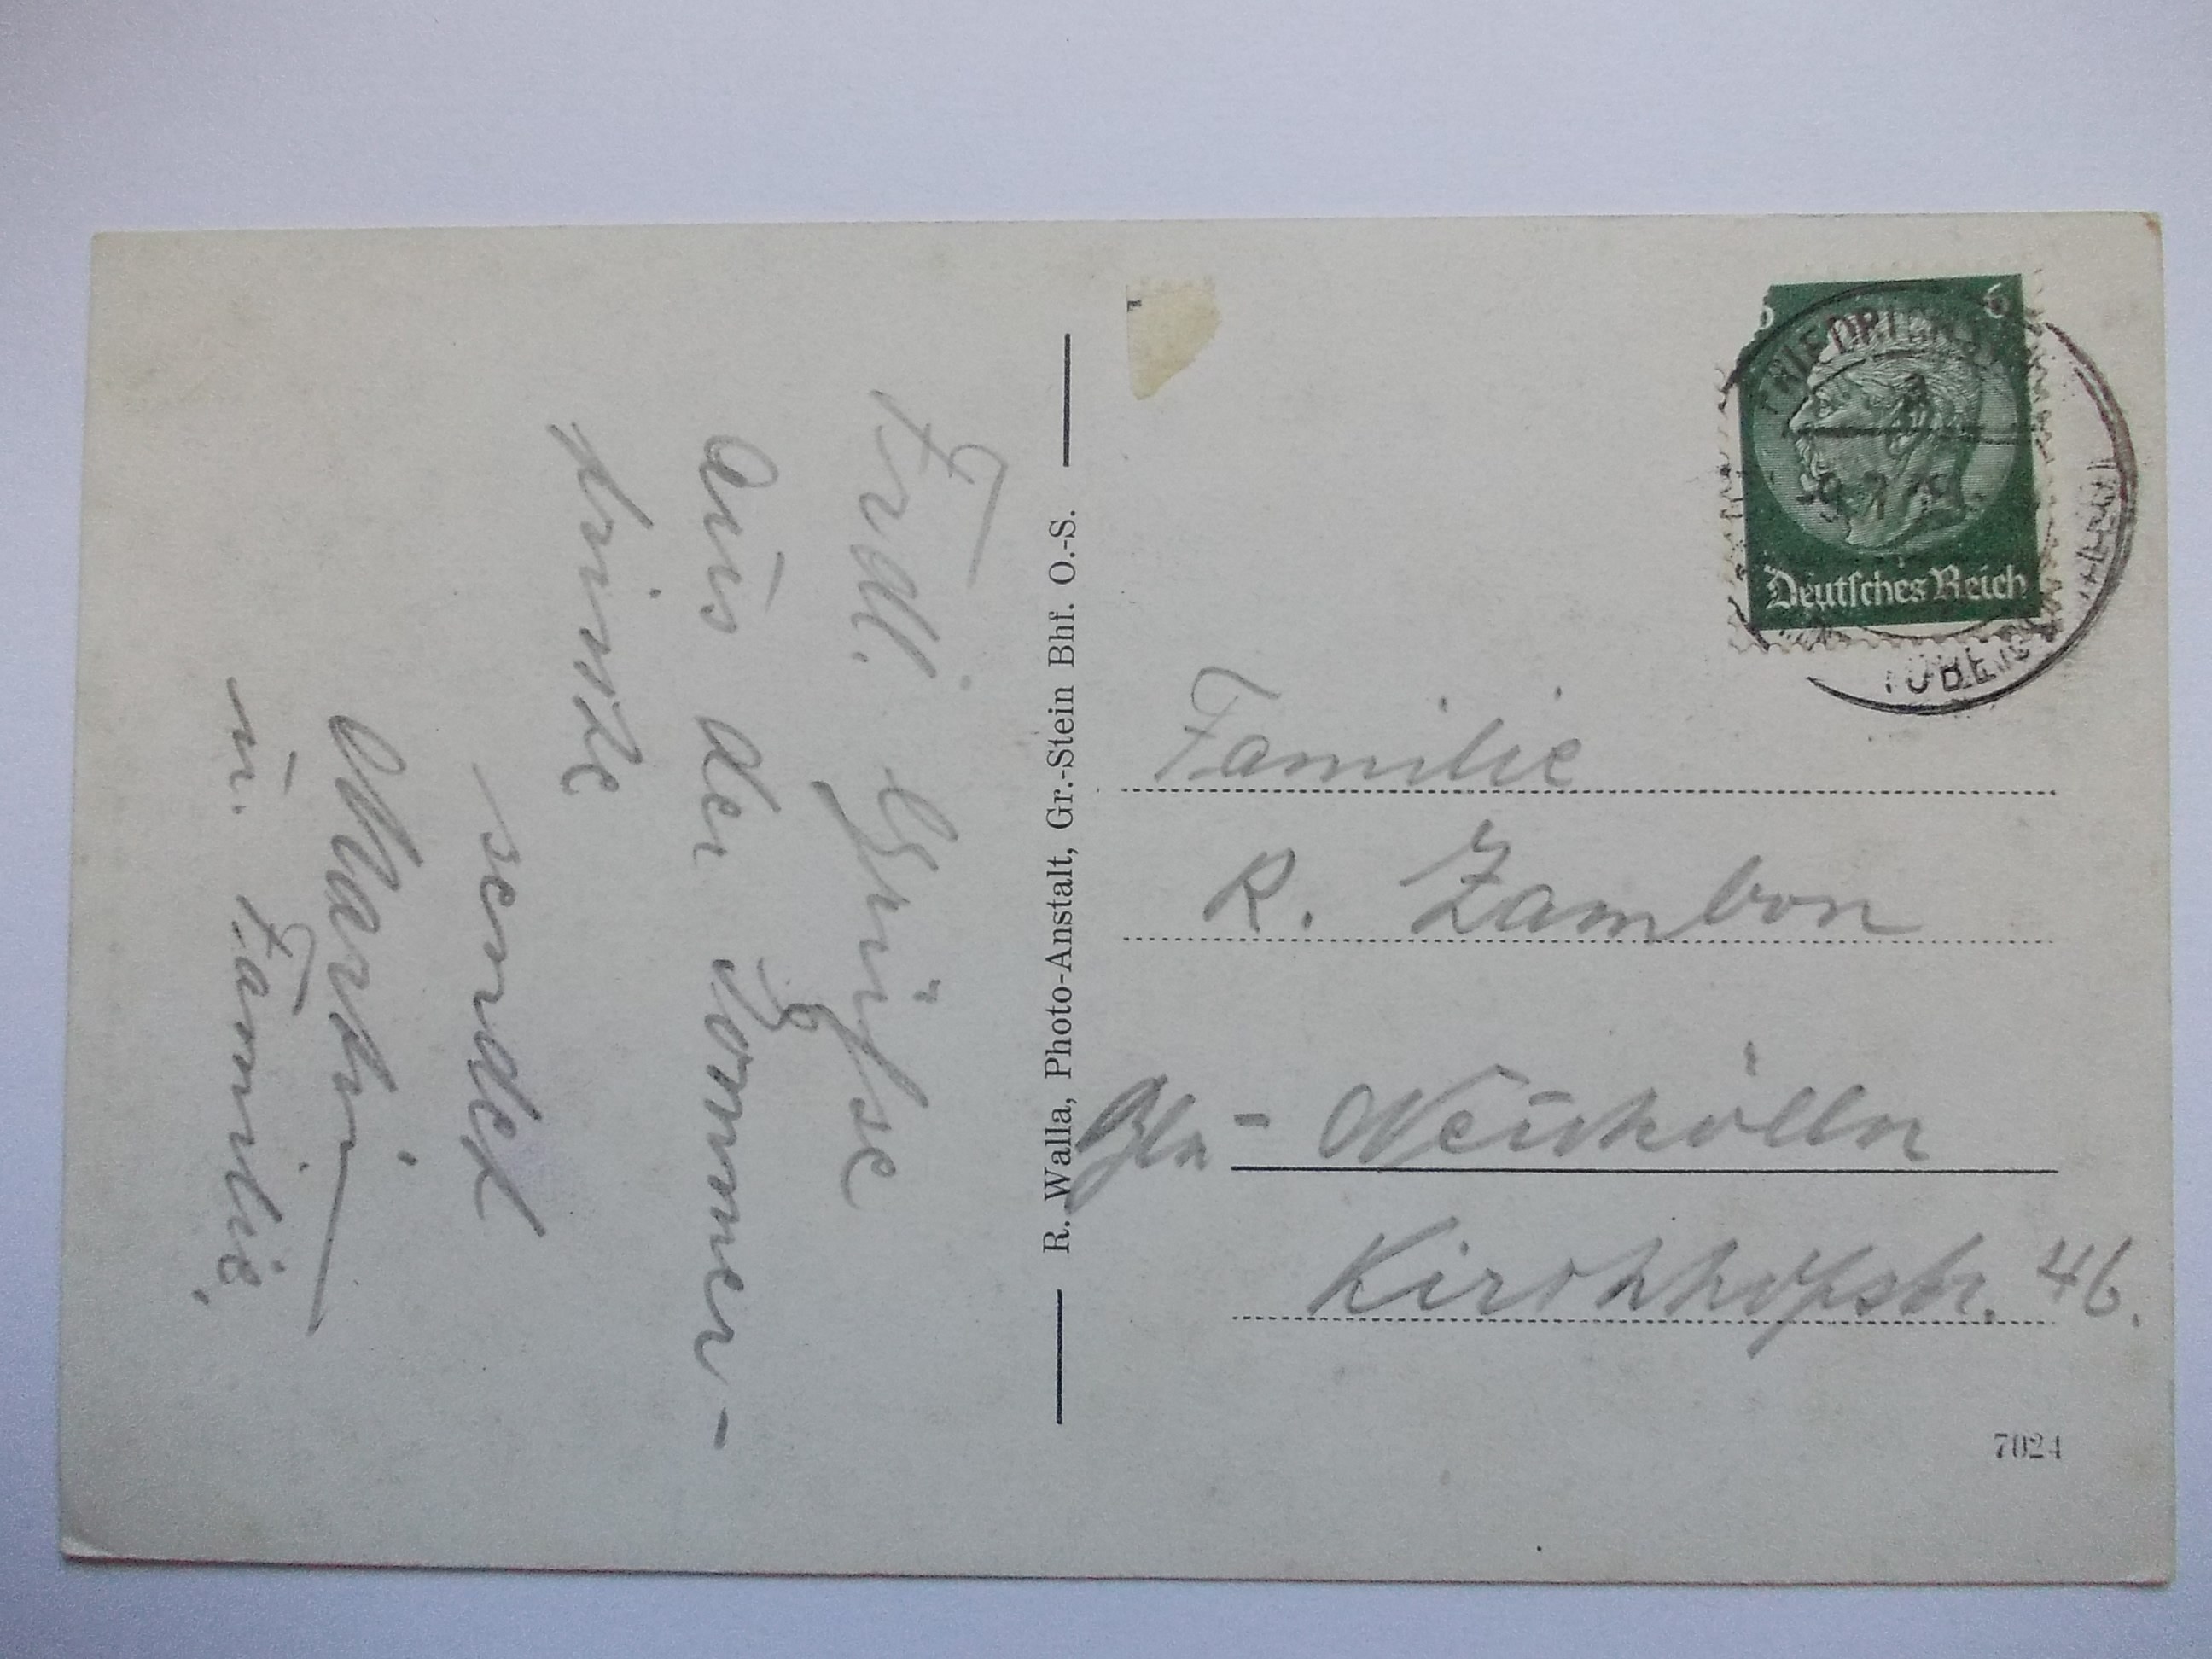 Frdl. Grüsse
aus der Sommer-
frische
sendet
Martin
u. Familie,
R. Walla, Photo-Anstalt, Gr.-Stein Bhf. O.-S.
6 6
Deutsches Reich
Familie
R. Zambon
Bln - Neukölln
Kirchhofstr. 46.
7024